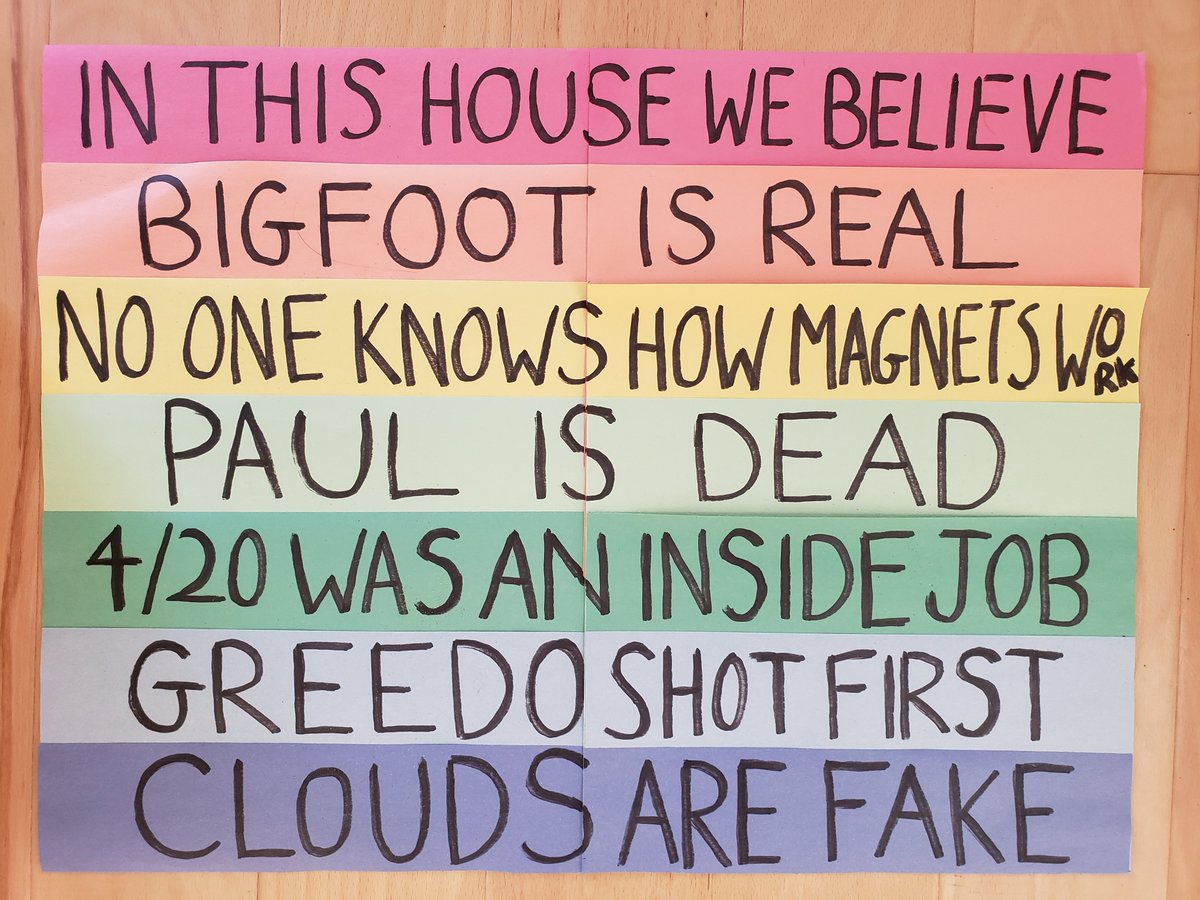 IN THIS HOUSE WE BELIEVE
BIGFOOT IS REAL
NO ONE KNOWS HOW MAGNETS WORK
PAUL IS DEAD
4/20 WAS AN INSIDE JOB
GREEDO SHOT FIRST
CLOUDS ARE FAKE